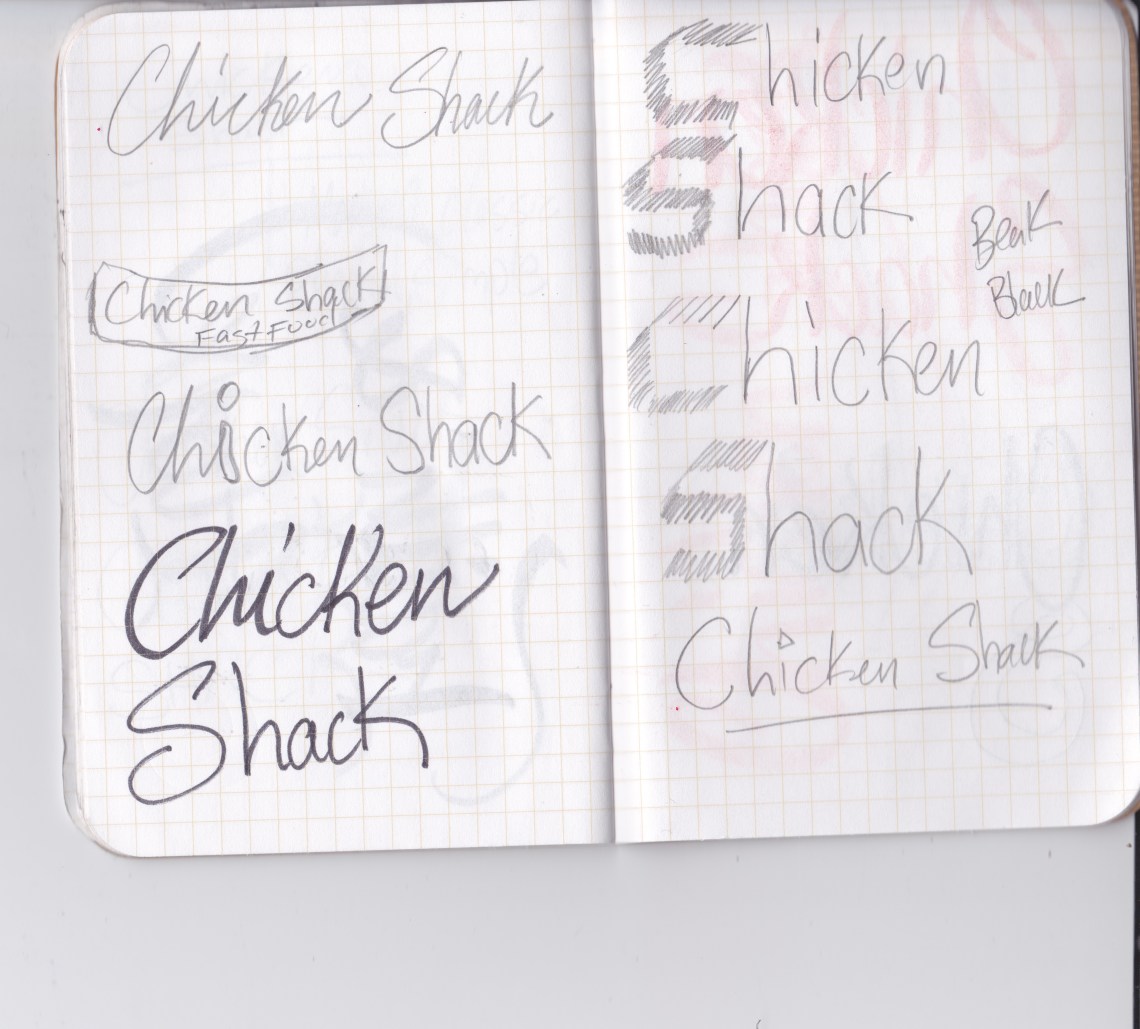 Chicken Shack
Chicken Shack
Fast Food
Chicken Shack
Chicken
Shack
Chicken
Shack
Beak
Chicken
Shack
Chicken Shack